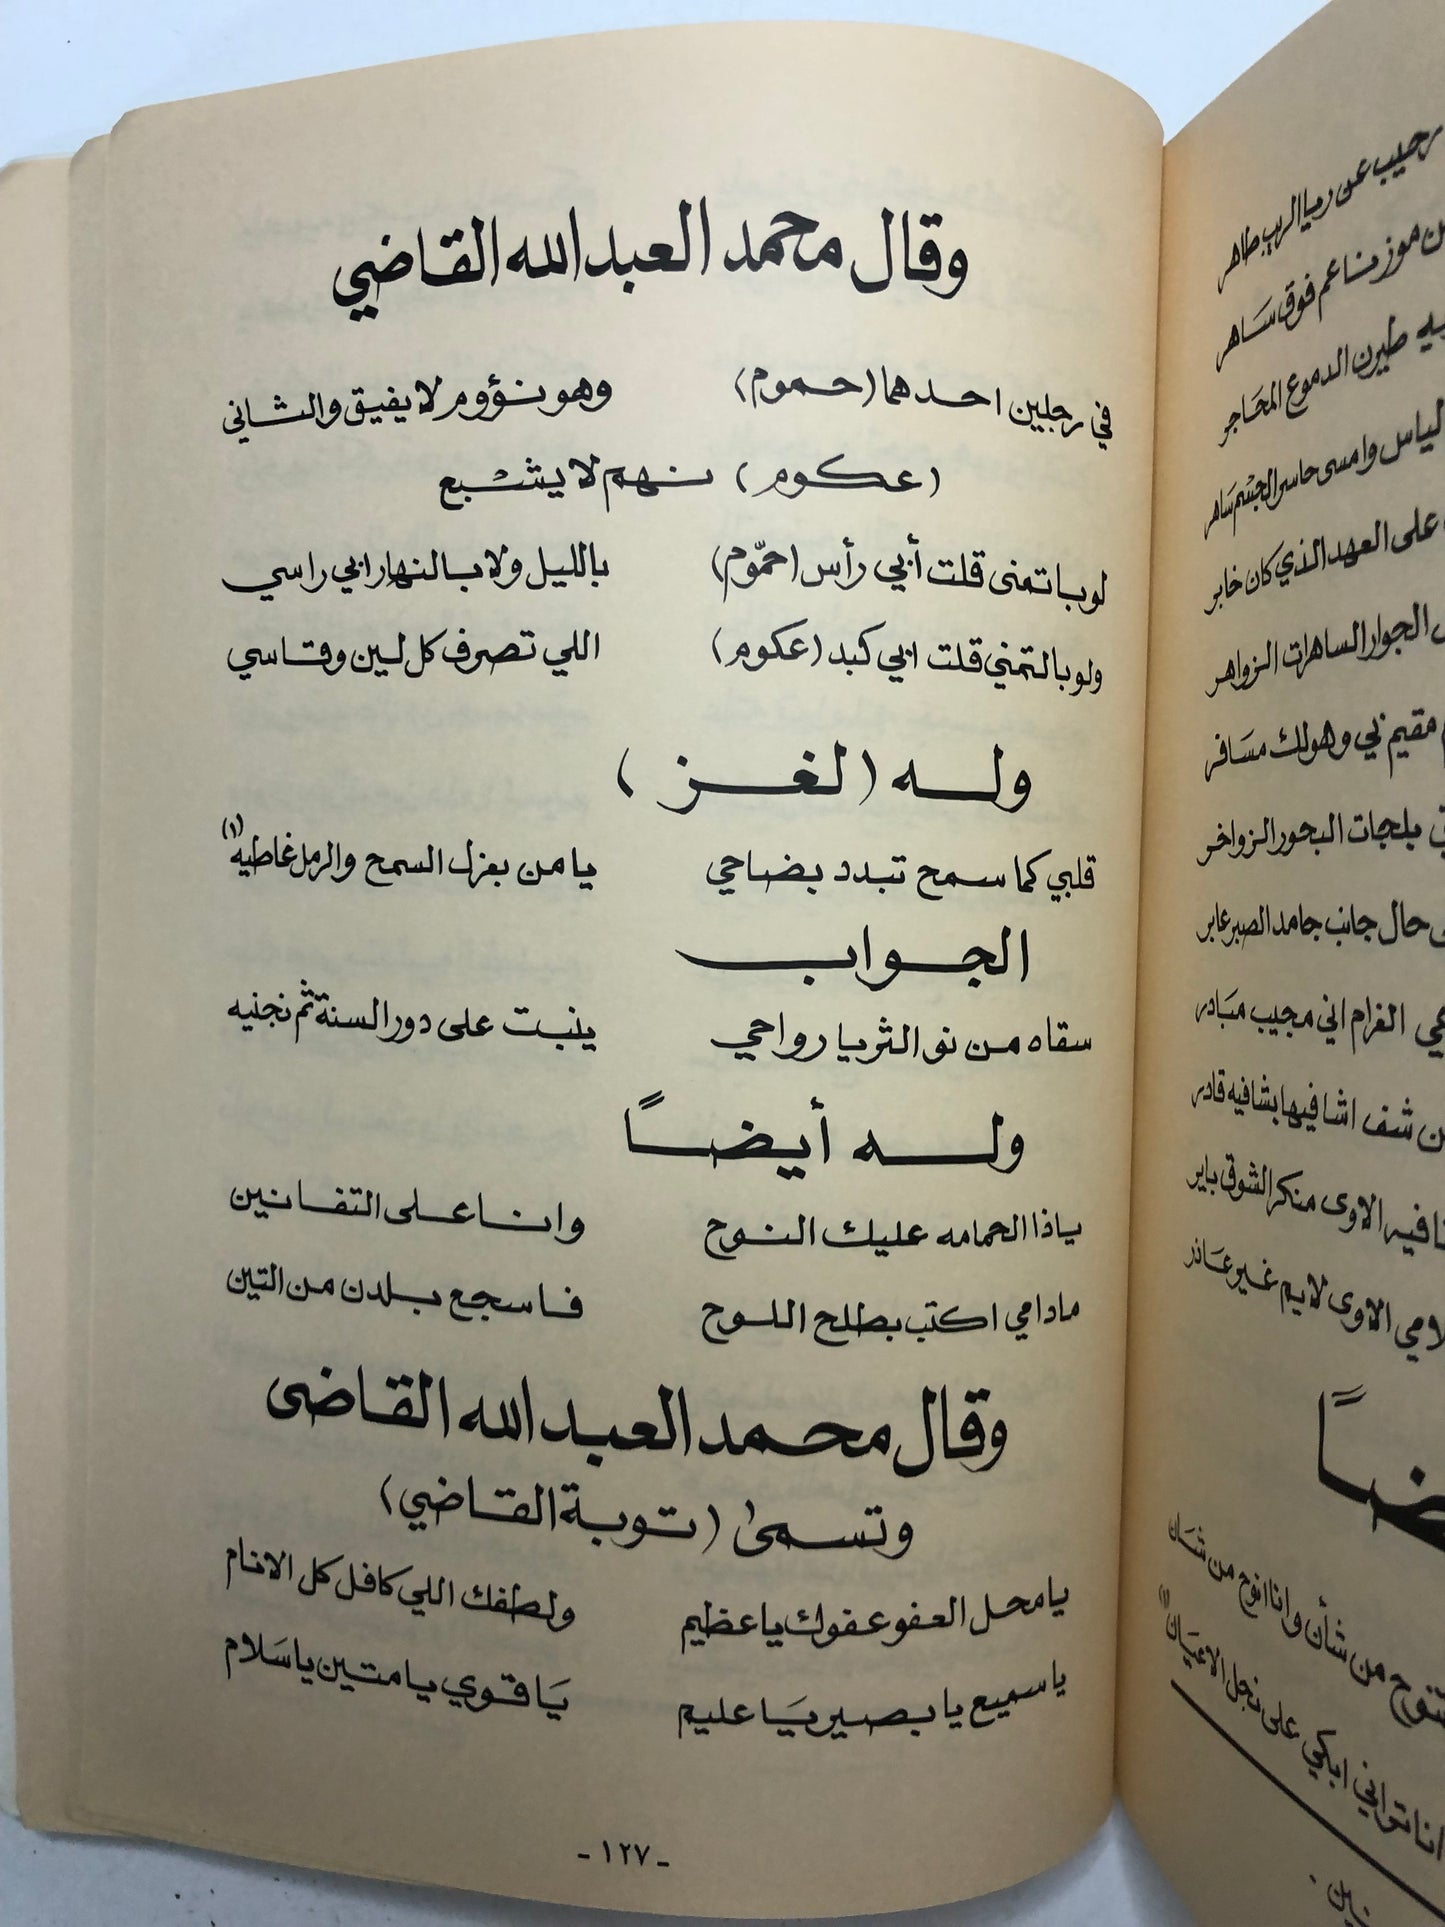 وقال محمد العبدالله القاضي
في رجلين احدهما (حموم) وهو نؤوم لا يفيق والثاني
(عكوم) نهم لا يشبع
لو باتمنى قلت أبي رأس (حمّوم) بالليل ولا بالنهار ابي راسي
ولو بالتمني قلت ابي كبد (عكوم) اللي تصرف كل لين وقاسي
وله (لغز)
قلبي كما سمح تبدد بضاحي يا من بعزل السمح والرمل غاطيه (١)
الجواب
سقاه من نو الثريا رواحي ينبت على دور السنة ثم نجنيه
وله أيضاً
ياذا الحمامه عليك النوح وانا على التفانين
مادامي اكتب بطلح اللوح فاسجع بلدن من التين
وقال محمد العبدالله القاضى
وتسمى (توبة القاضي)
يا محل العفو عفوك يا عظيم ولطفك اللي كافل كل الانام
يا سميع يا بصير يَا عليم يَا قوي يا متين يا سَلام
- ١٢٧ -
رحيب عن رميا الريب طاهر
موز مناعم فوق سَاهر
طيرن الدموع المحَاجر
الياس وامسى حاسر الجسْم سَاهر
على العهد الذي كان خابر
الجوار الساهرات الزواهر
مقيم بي وهو لك مسَافر
بلجات البحور الزواخر
حال جانب جامد الصبر عابر
الغرام اني مجيب مبَادر
شف اشافيها بشافيه قادر
الاوى منكر الشوق باير
الاوى لايم غير عَاذر
من شأن وانا انوح من شَان
ابكي على نجل الاعيَان (١)